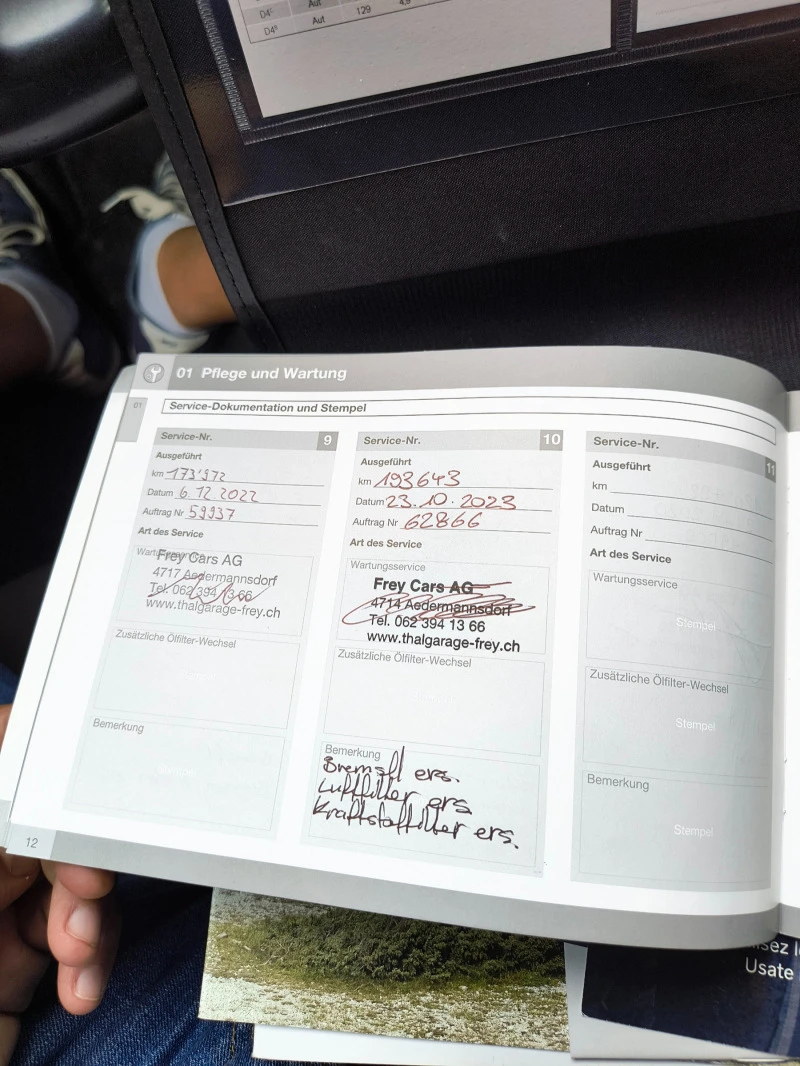 D4⁵ Aut
D4⁶ Aut 129 4,9
01 Pflege und Wartung
01
Service-Dokumentation und Stempel
Service-Nr. 9
Ausgeführt
km 173'972
Datum 6.12.2022
Auftrag Nr 59937
Art des Service
Wartungsservice
Frey Cars AG
4717 Aedermannsdorf
Tel. 062 394 13 66
www.thalgarage-frey.ch
Zusätzliche Ölfilter-Wechsel
Bemerkung
12
Service-Nr. 10
Ausgeführt
km 193643
Datum 23.10.2023
Auftrag Nr 62866
Art des Service
Wartungsservice
Frey Cars AG
4714 Aedermannsdorf
Tel. 062 394 13 66
www.thalgarage-frey.ch
Zusätzliche Ölfilter-Wechsel
Bemerkung
Bremsfl ers.
Luftfilter ers
Kraftstoffilter ers.
Service-Nr. 11
Ausgeführt
km
Datum
Auftrag Nr
Art des Service
Wartungsservice
Stempel
Zusätzliche Ölfilter-Wechsel
Stempel
Bemerkung
Stempel
Usate